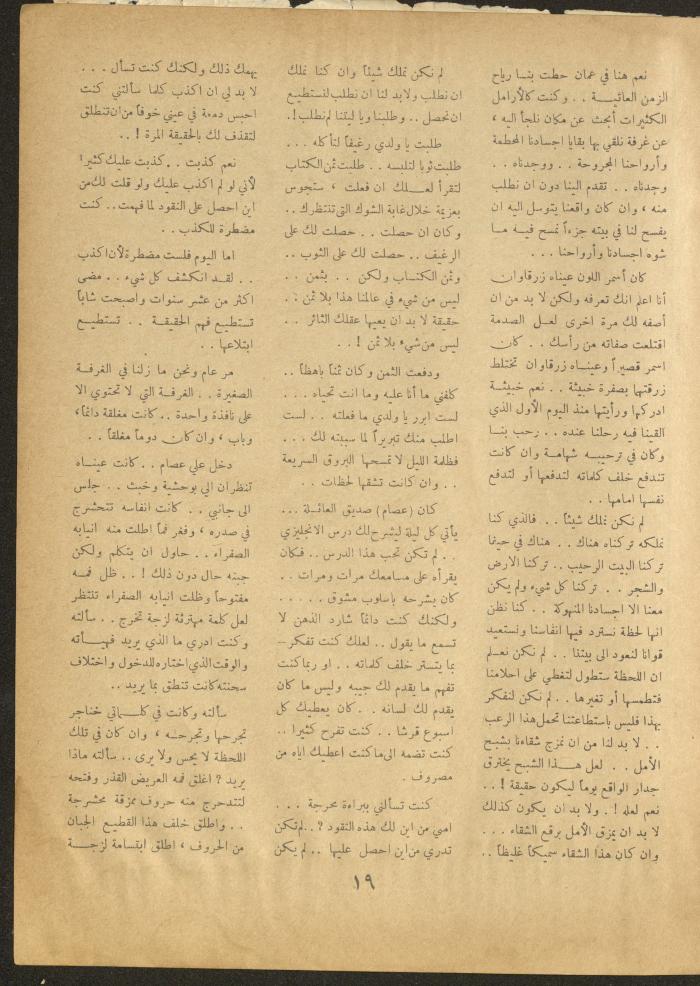 نعم هنا في عمان حطت بنا رياح
الزمن العاتية . . وكنت كالأرامل
الكثيرات أبحث عن مكان نلجأ اليه ،
عن غرفة نلقي بها بقايا اجسادنا المحطمة
وأرواحنا المجروحة . . ووجدناه . .
وجدناه . . تقدم الينا دون ان نطلب
منه ، وان كان واقعنا يتوسل اليه ان
يفسح لنا في بيته جزءاً نمسح فيه ما
شوه اجسادنا وأرواحنا . . .
كان أسمر اللون عيناه زرقاوان
أنا اعلم انك تعرفه ولكن لا بد من ان
أصفه لك مرة اخرى لعل الصدمة
اقتلعت صفاته من رأسك . . كان
اسمر قصيراً وعيناه زرقاوان تختلط
زرقتها بصفرة خبيثة . . نعم خبيثة
ادركها ورأيتها منذ اليوم الأول الذي
القينا فيه رحلنا عنده . . رحب بنا
وكان في ترحيبه شهامة وان كانت
تندفع خلف كلماته لتدفعها أو لتدفع
نفسها امامها . .
لم نكن نملك شيئاً . . فالذي كنا
نملكه تركناه هناك . . هناك في حيفا
تركنا البيت الرحيب . . تركنا الارض
والشجر . . تركنا كل شيء ولم يكن
معنا الا اجسادنا المنهوكة . . كنا نظن
انها لحظة نسترد فيها انفاسنا ونستعيد
قوانا لنعود الى بيتنا . . لم نكن نعلم
ان اللحظة ستطول لتغطي على احلامنا
فتطمسها أو تغيرها . . لم نكن لنفكر
بهذا فليس باستطاعتنا تحمل هذا الرعب
. . لا بد لنا من ان نمزج شقاءنا بشبح
الأمل . . لعل هذا الشبح يخترق
جدار الواقع يوماً ليكون حقيقة ! . .
نعم لعله ! . . ولا بد ان يكون كذلك
لا بد ان يمزق الأمل برقع الشقاء . . .
وان كان هذا الشقاء سميكاً غليظاً . .
لم نكن نملك شيئاً وان كنا نملك
ان نطلب ولا بد لنا ان نطلب لنستطيع
ان نحصل . . وطلبنا ويا ليتنا لم نطلب ! .
طلبت يا ولدي رغيفاً لتأكله . . .
طلبت ثوبا لتلبسه . . طلبت ثمن الكتاب
لتقرأ لعلك ان فعلت ، ستجوس
بعزيمة خلال غابة الشوك التي تنتظرك . .
وكان ان حصلت . . حصلت لك على
الرغيف . . حصلت لك على الثوب . .
وثمن الكتاب ولكن . . بثمن . .
ليس من شيء في عالمنا هذا بلا ثمن : .
حقيقة لا بد ان يعيها عقلك الثائر . .
ليس من شيء بلا ثمن ! . .
ودفعت الثمن وكان ثمناً باهظاً . .
كلفني ما أنا عليه وما انت تحياه . . .
لست ابرر يا ولدي ما فعلته . . لست
اطلب منك تبريراً لما سببته لك . . .
فظلمة الليل لا تمسحها البروق السريعة
. . وان كانت تشقها لحظات . .
كان (عصام) صديق العائلة . . .
يأتي كل ليلة ليشرح لك درس الانجليزي
. . لم تكن تحب هذا الدرس . . فكان
يقرأه على مسامعك مرات ومرات . .
كان يشرحه باسلوب مشوق . . . . .
ولكنك كنت دائماً شارد الذهن لا
تسمع ما يقول . . لعلك كنت تفكر
بما يتستر خلف كلماته . . او ربما كنت
تفهم ما يقدم لك جيبه وليس ما كان
يقدم لك لسانه . . كان يعطيك كل
اسبوع قرشا . . كنت تفرح كثيرا . .
كنت تضمه الى ما كنت اعطيك اياه من
مصروف .
كنت تسألني ببراءة محرجة . . .
امي من اين لك هذه النقود ? . . لم تكن
تدري من اين احصل عليها . . لم يكن
يهمك ذلك ولكنك كنت تسأل . . .
لا بد لي ان اكذب كلما سألتني كنت
احبس دمعة في عيني خوفاً من ان تنطلق
لتقذف لك بالحقيقة المرة ! . .
نعم كذبت . . كذبت عليك كثيرا
لأني لو لم اكذب عليك ولو قلت لك من
اين احصل على النقود لما فهمت . . كنت
مضطرة للكذب . .
اما اليوم فلست مضطرة لأن اكذب
. . لقد انكشف كل شيء . . مضى
اكثر من عشر سنوات واصبحت شاباً
تستطيع فهم الحقيقة . . تستطيع
ابتلاعها . .
مر عام ونحن ما زلنا في الغرفة
الصغيرة . . الغرفة التي لا تحتوي الا
على نافذة واحدة . . كانت مغلقة دائماً ،
وباب ، وان كان دوماً مغلقاً . .
دخل علي عصام . . كانت عيناه
تنظران الي بوحشية وخبث . . جلس
الى جانبي . . كانت انفاسه تتحشرج
في صدره ، وفغر فماً اطلت منه انيابه
الصفراء . . حاول ان يتكلم ولكن
جبنه حال دون ذلك ! . . ظل فمه
مفتوحاً وظلت انيابه الصفراء تنتظر
لعل كلمة مهترئة لزجة تخرج . . سألته
وكنت ادري ما الذي يريد فهيأته
والوقت الذي اختاره للدخول واختلاف
سحنته كانت تنطق بما يريد . .
سألته وكانت في كلماتي خناجر
تجرحها وتجرحه ، وان كان في تلك
اللحظة لا يحس ولا يرى . . سألته ماذا
يريد ? اغلق فمه العريض القذر وفتحه
لتتدحرج منه حروف ممزقة محشرجة
. . واطلق خلف هذا القطيع الجبان
من الحروف ، اطلق ابتسامة لزجة
١٩